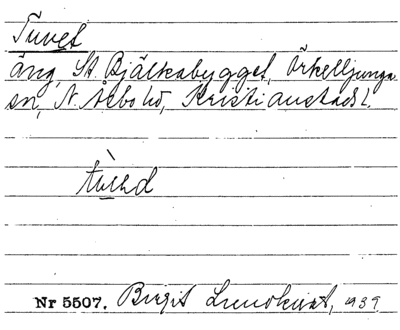 Tuvet
äng, St. Bjälkabygget, Örkelljunga
sn, N. Åsbo hd, Kristianstads l.
Nr 5507. Birgit Lundkvist, 1939